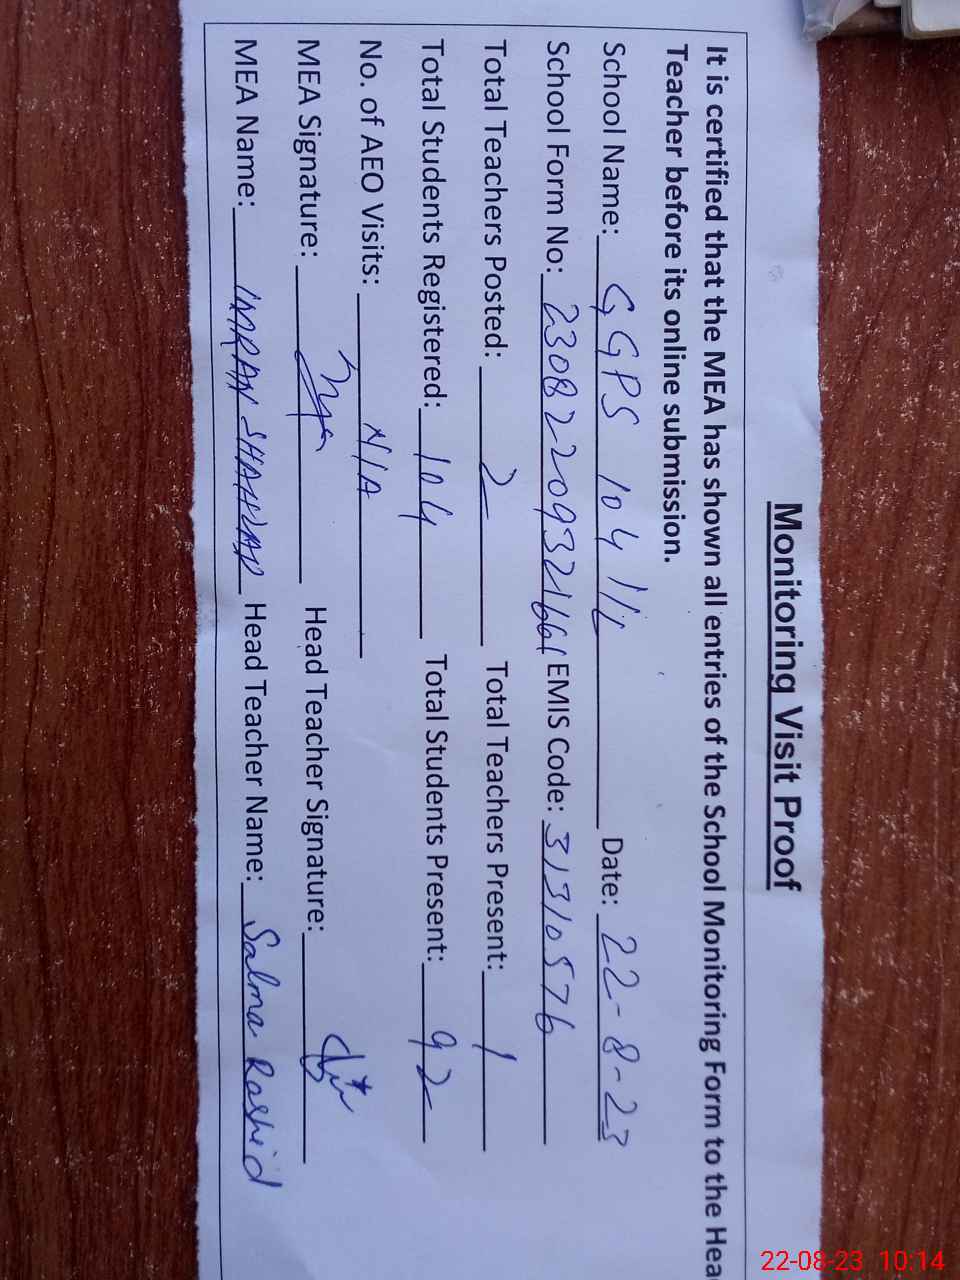 Monitoring Visit Proof
It is certified that the MEA has shown all entries of the School Monitoring Form to the Hea
Teacher before its online submission.
School Name: GGPS 104 1/L Date: 22-8-23
School Form No: 23082209321661 EMIS Code: 31310576
Total Teachers Posted: 2 Total Teachers Present: 1
Total Students Registered: 104 Total Students Present: 92
No. of AEO Visits: N/A
MEA Signature: Head Teacher Signature:
MEA Name: IMRAN Head Teacher Name: Salma Rashid
22-08-23 10:14